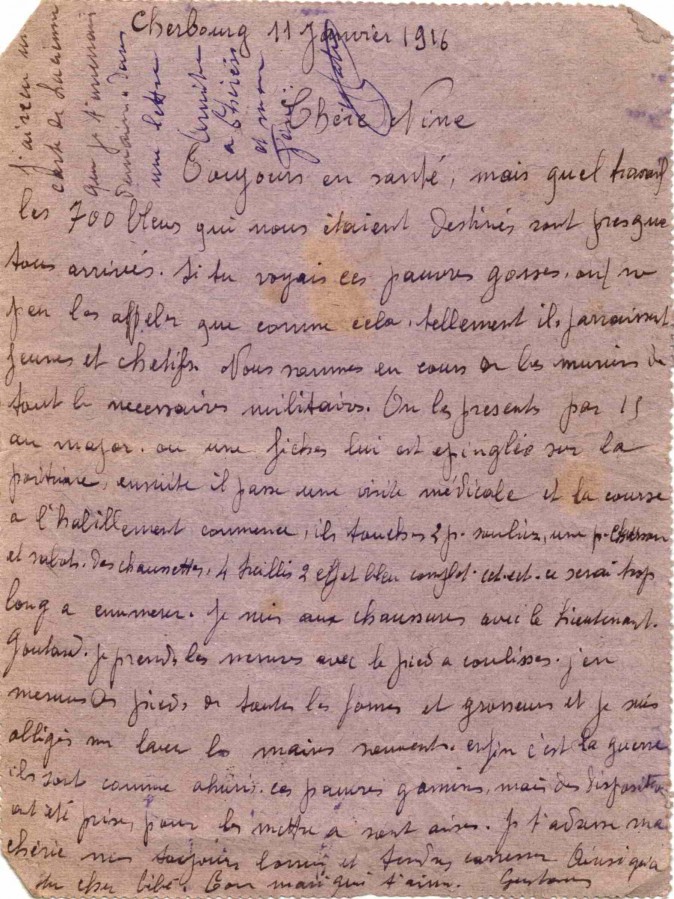 Cherbourg 11 Janvier 1916
J'ai reçu une
carte de Lucienne
que je t'enverrai
demain dans
une lettre
Amitié
a Chérie
et mon
Chère Nine
Toujours en santé, mais quel travail
les 700 bleus qui nous étaient destinés sont presque
tous arrivés. Si tu voyais ces pauvres gosses, on ne
peu les appeler que comme cela, tellement ils parraissent
jeunes et chetifs. Nous sommes en cours de les munirs de
tout le necessaires militaires. On les presents par 15
au major. ou une fiches lui est epinglée sur la
poitrine, ensuite il passe une visite médicale et la course
a l'habillement commence, ils touches 2 p. souliers, une p.
et sabots. des chaussettes, 4 treillis 2 effet bleu complet. cet. ect. ce serai trop
long a enumerer. Je suis aux chaussures avec le Lieutenant.
Goulard. je prends les mesures avec le pied a coulisses. j'en
mesures des pieds de toutes les formes et grosseurs et je suis
obligés me laver les mains souvents. enfin c'est la guerre
ils sont comme ahuris. ces pauvres gamins, mais des dispositions
ont été prises, pour les mettre a sont aises. Je t'adresse ma
chérie mes toujours bons et tendres caresses Ainsi qu'a
du cher bébé. Ton mari qui t'aime. Gustave